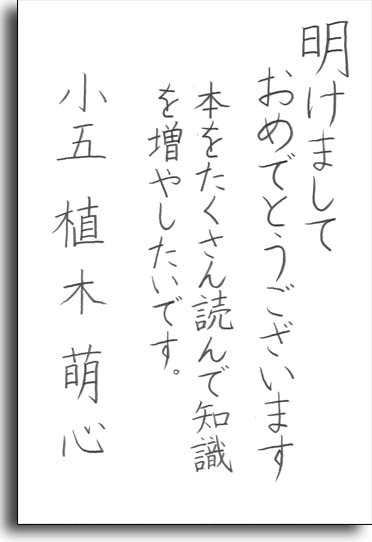 明けまして
おめでとうございます
本をたくさん読んで知識
を増やしたいです。
小五 植木萌心